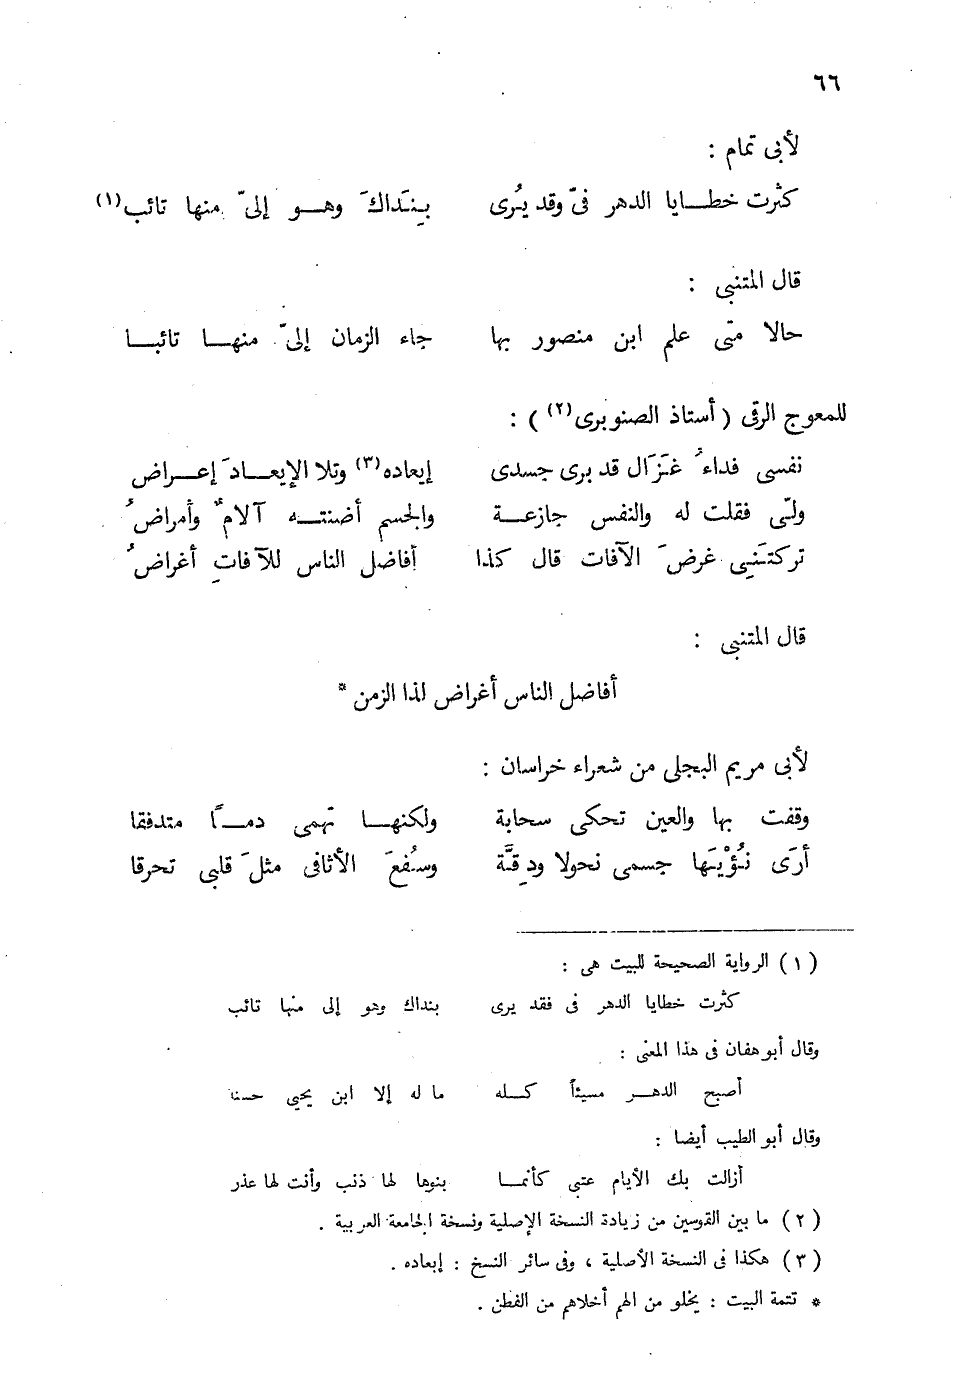 ٦٦
لأبى تمام :
كثرت خطــايا الدهر فىّ وقد يُرى بِنَداكَ وهــو إلىّ منها تائب(١)
قال المتنبى :
حالا متى علم ابن منصور بها جاء الزمان إلىّ منهــا تائبــا
للمعوج الرقى ( أستاذ الصنوبرى(٢) ) :
نفسى فداءُ غَزَال قد برى جسدى إيعاده(٣) وتلا الإيعــادَ إعــراض
ولّى فقلت له والنفس جازعــة والجسم أضنتــه آلامٌ وأمراضُ
تركتَنِى غرضَ الآفات قال كذا أفاضل الناس للآفاتِ أغراضُ
قال المتنبى :
أفاضل الناس أغراض لذا الزمن *
لأبى مريم البجلى من شعراء خراسان :
وقفت بها والعين تحكى سحابة ولكنهــا تهمى دمــًا متدفقا
أرَى نُؤْيَها جسمى نحولا ودِقَّة وسُفعَ الأثافى مثلَ قلبى تحرقا
(١) الرواية الصحيحة للبيت هى :
كثرت خطايا الدهر فى فقد يرى بنداك وهو إلى منها تائب
وقال أبو هفان فى هذا المعنى :
أصبح الدهــر مسيئاً كــله ما له إلا ابن يحيى حسنا
وقال أبو الطيب أيضا :
أزالت بك الأيام عتبى كأنمــا بنوها لها ذنب وأنت لها عذر
(٢) ما بين القوسين من زيادة النسخة الإصلية ونسخة الجامعة العربية .
(٣) هكذا فى النسخة الأصلية ، وفى سائر النسخ : إبعاده .
* تتمة البيت : يخلو من الهم أخلاهم من الفطن .